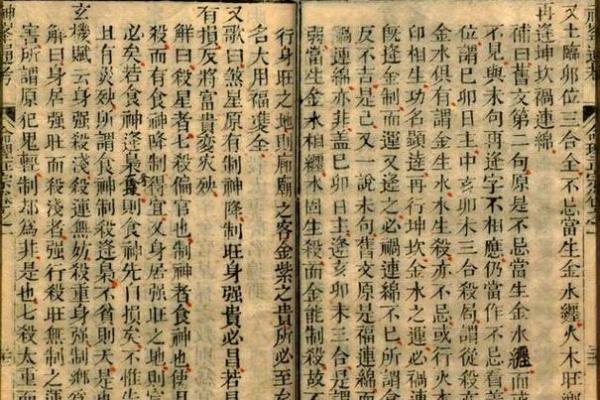 又土臨卯位三合全不忌當生金水纒火木旺
再逢坤坎禍連綿
補曰舊文第二句原是不忌當生金水纒而或
不見與末句再逢字不相應仍當作不忌看
位謂巳卯日主中亥卯未三合殺局謂從殺
金水俱有謂金生水水生殺亦不忌或行火木
印相生功名顯達再行坤坎金水之運必禍連
旣逢金制而運又逢之必禍連綿不巳所謂食
反不吉是巳又一說末句舊文原是福連綿而
禍連綿亦非蓋巳卯日主逢亥卯未三合是謂
弱當生金水相纒水固生殺而金能制殺故不
行身旺之地則廊廟之客金紫之貴所必至矣
名大用福雙全
又歌曰煞星原有制神降制旺身强貴必昌若是
有損反將富貴變灾殃
解曰殺星者七殺偏官也制神者食神也使月
殺而有食神降制殺神又身居强旺之地則富
必矣若食神逢梟則食神先自損矣不惟失
且有灾殃所謂食神制殺逢梟不貧則夭是也
玄機賦云身强殺淺殺運無妨殺重身强制鄉為
解曰身居强旺而殺淺者强行殺旺無制之運
害所謂原犯鬼輕制却為非是也七殺太重而
神峯通考